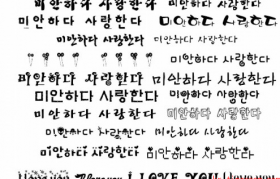 미안하다 사랑한다 미안하다 사랑한다
미안하다 사랑한다 미안하다 사랑한다
미안하다 사랑한다 미안하다 사랑한다
미안하다 사랑한다
미안하다 사랑한다 미안하다 사랑한다
미안하다 사랑한다 미안하다 사랑한다
미안하다 사랑한다 미안하다 사랑한다
미안하다 사랑한다 미안하다 사랑한다
미안하다 사랑한다 미안하다 사랑한다
I love you I love you I LOVE YOU I love you